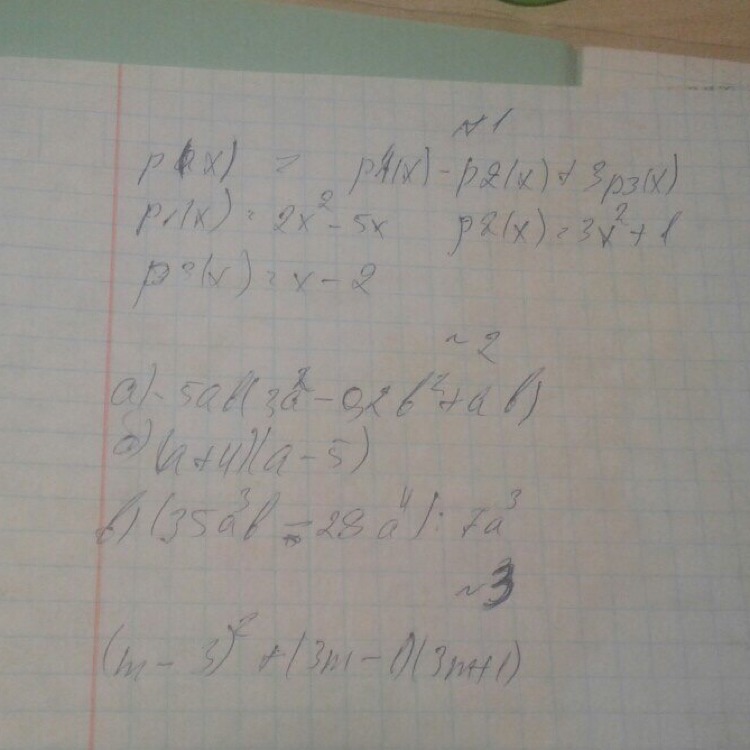 №1
p(x) = p1(x) - p2(x) + 3p3(x)
p1(x) = 2x² - 5x p2(x) = 3x² + 1
p3(x) = x - 2
№2
а) -5ab(3a² - 0,2b² + ab)
б) (a+4)(a-5)
в) (35a³b - 28a⁴) : 7a³
№3
(m - 3)² + (3m - 1)(3m+1)